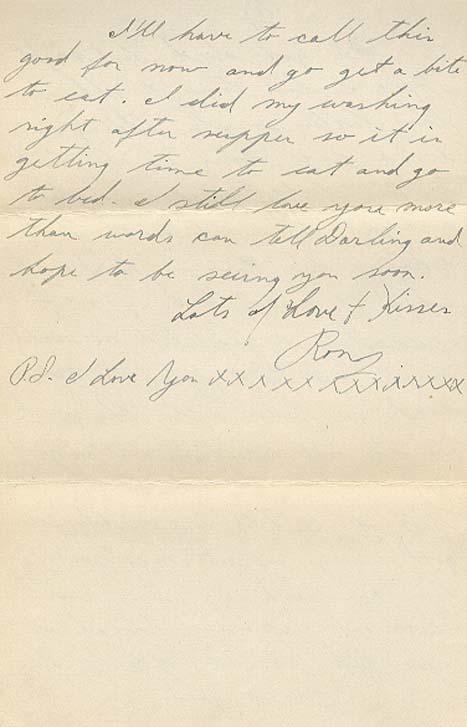 I'll have to call this
good for now and go get a bite
to eat. I did my washing
right after supper so it is
getting time to eat and go
to bed. I still love you more
than words can tell Darling and
hope to be seeing you soon.
Lots of Love & Kisses
Ron
P.S. I Love You xx x x xx xxxx xxxxxx